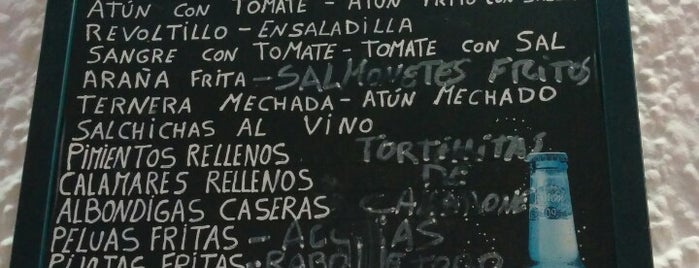 ATÚN CON TOMATE - ATÚN FRITO CON
REVOLTILLO - ENSALADILLA
SANGRE CON TOMATE - TOMATE CON SAL
ARAÑA FRITA - SALMONETES FRITOS
TERNERA MECHADA - ATÚN MECHADO
SALCHICHAS AL VINO
PIMIENTOS RELLENOS TORTILLITAS
DE
CALAMARES RELLENOS
ALBONDIGAS CASERAS
PELUAS FRITAS -
PIJOTAS FRITAS - RABO DE TORO